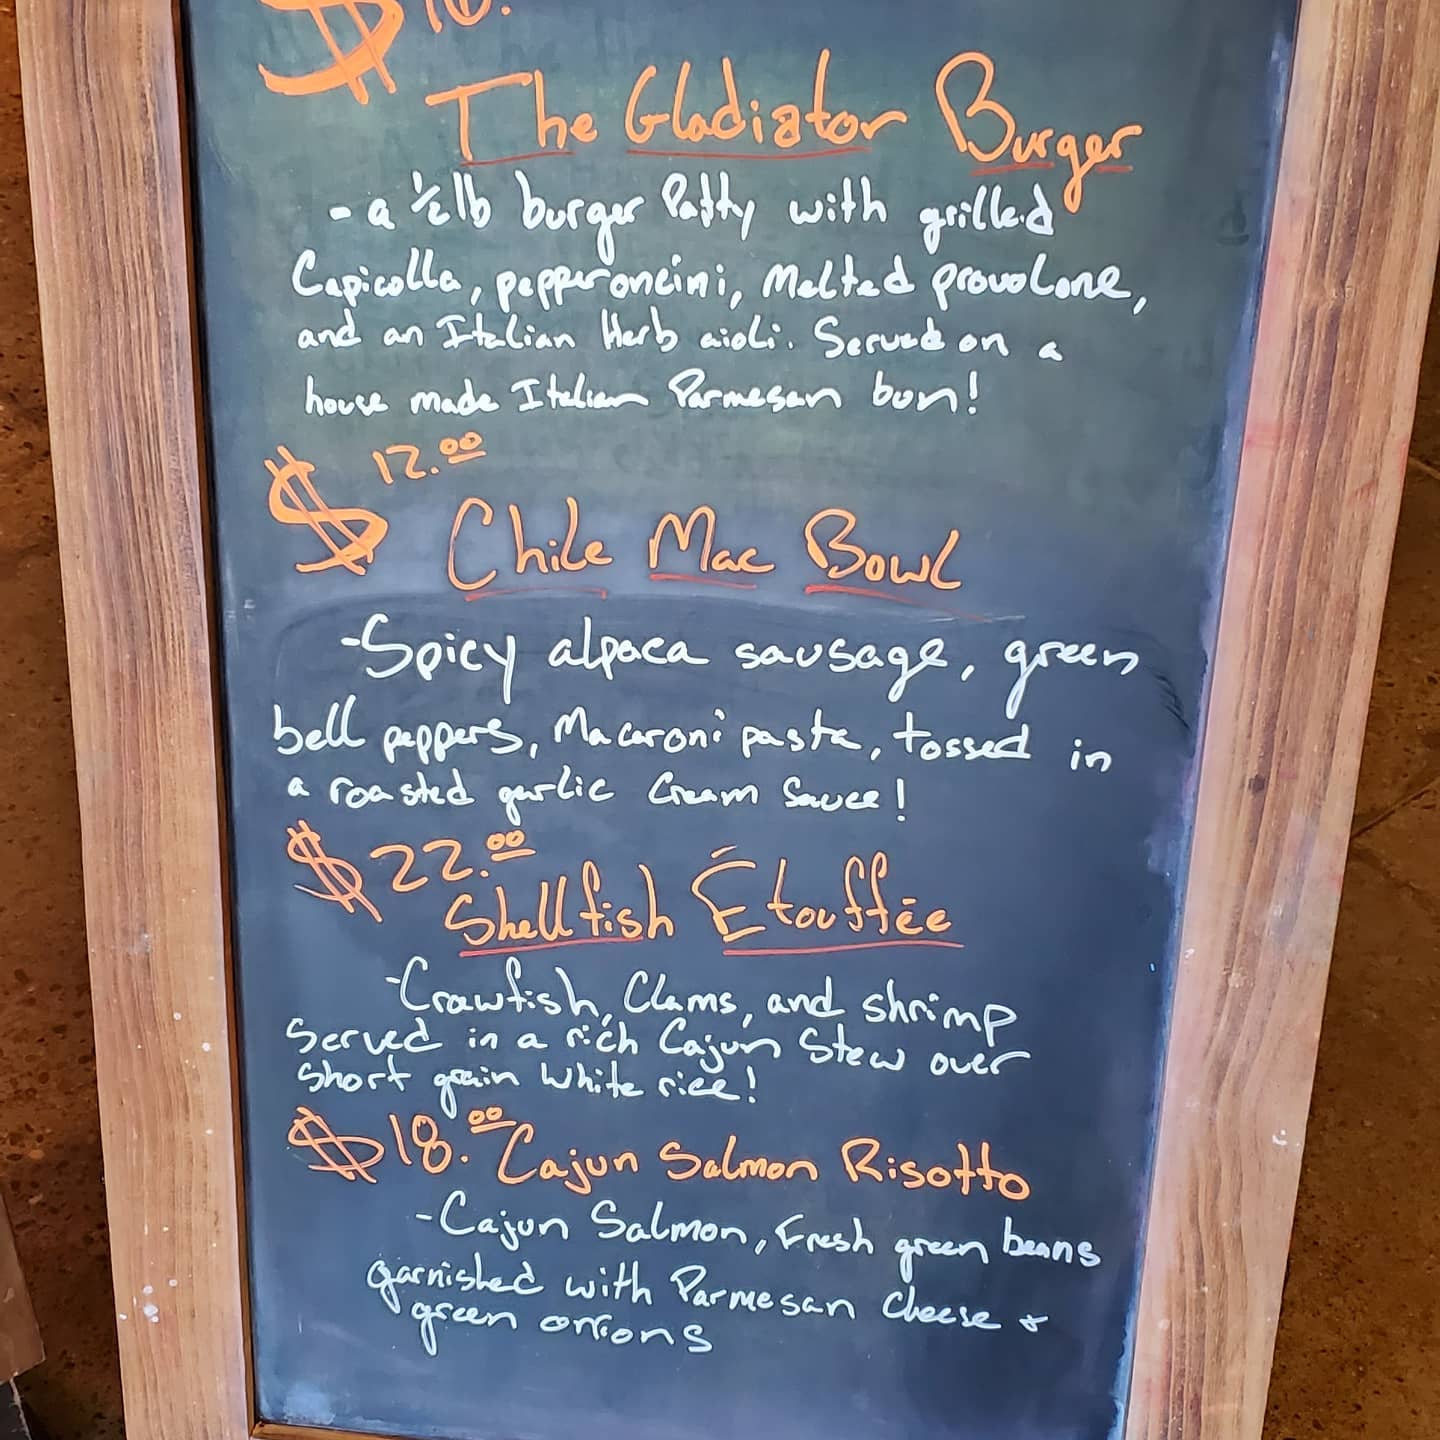 $16.
The Gladiator Burger
- a 1/2 lb burger Patty with grilled
Capicolla, pepperoncini, Melted provolone,
and an Italian Herb aioli. Served on a
house made Italian Parmesan bun!
$12.00
Chile Mac Bowl
- Spicy alpaca sausage, green
bell peppers, Macaroni pasta, tossed in
a roasted garlic Cream Sauce!
$22.00
Shellfish Étouffée
- Crawfish, Clams, and shrimp
Served in a rich Cajun Stew over
Short grain White rice!
$18.00 Cajun Salmon Risotto
- Cajun Salmon, Fresh green beans
garnished with Parmesan Cheese &
green onions